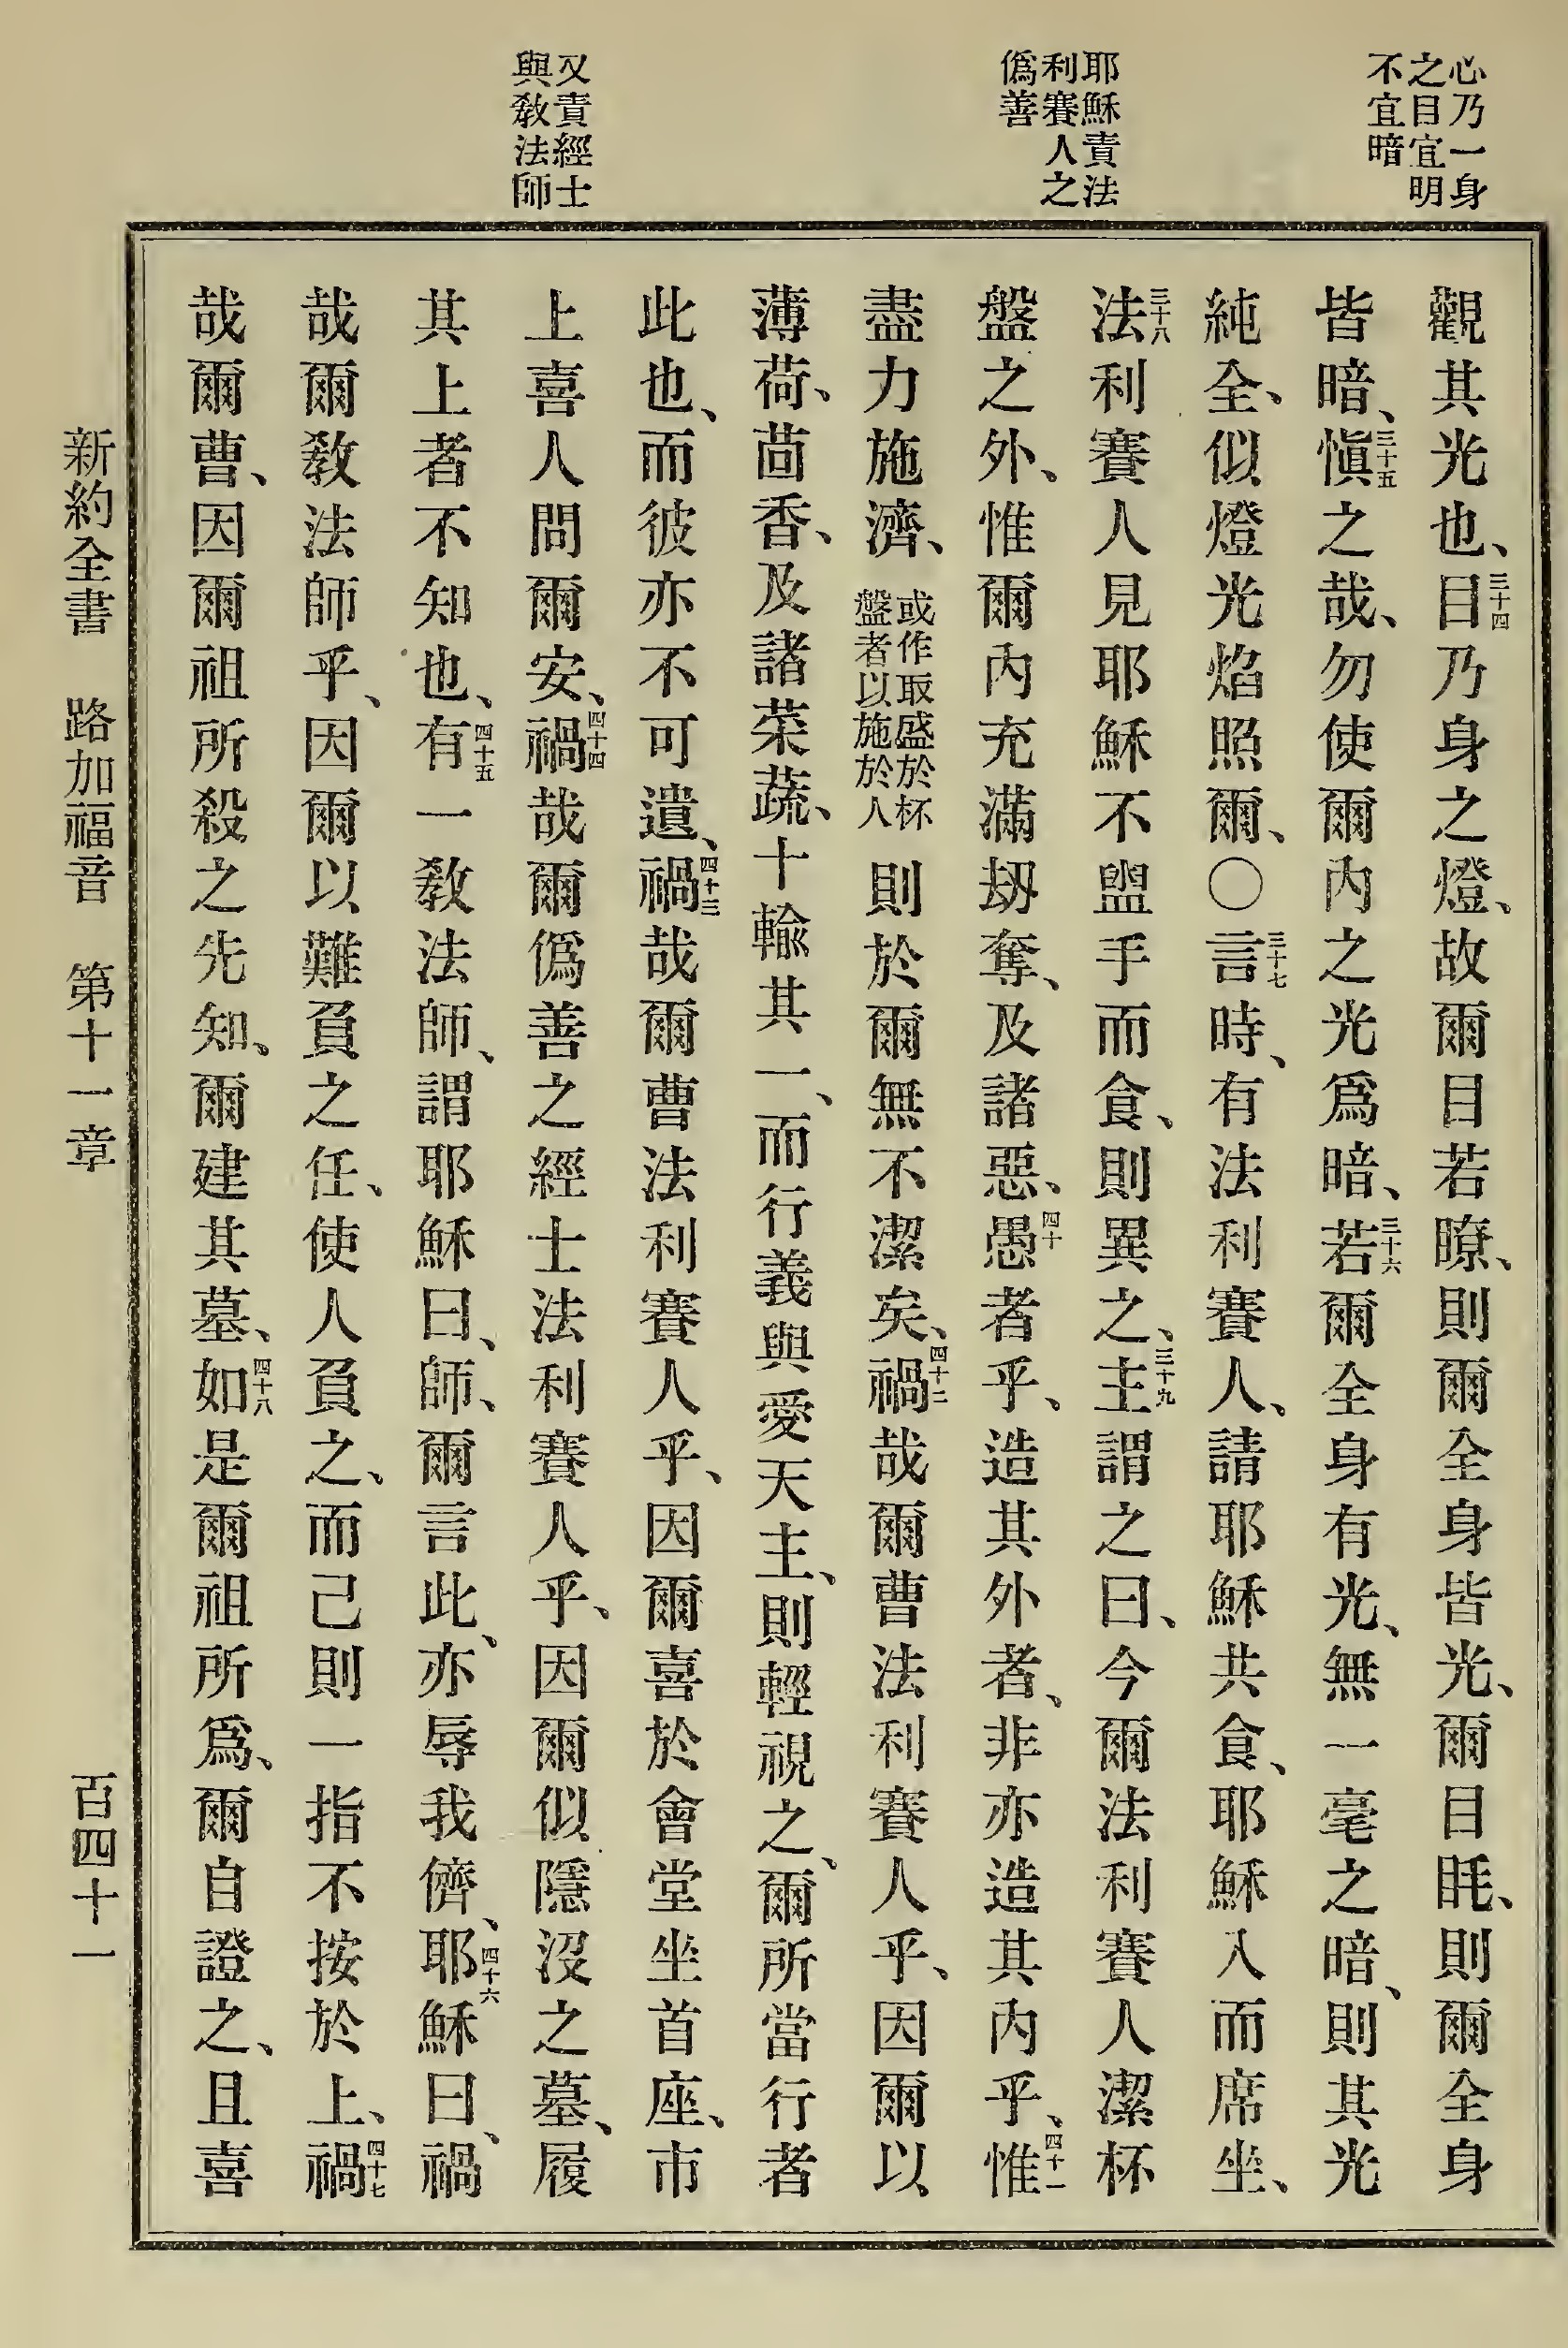 心乃一身
之目宜明
不宜暗
耶穌責法
利賽人之
僞善
又責經士
與教法師
觀其光也、三十四目乃身之燈、故爾目若瞭、則爾全身皆光、爾目眊、則爾全身
皆暗、三十五愼之哉、勿使爾內之光爲暗、三十六若爾全身有光、無一毫之暗、則其光
純全、似燈光焰照爾、〇三十七言時、有法利賽人、請耶穌共食、耶穌入而席坐、
三十八法利賽人見耶穌不盥手而食、則異之、三十九主謂之曰、今爾法利賽人潔杯
盤之外、惟爾內充滿刼奪、及諸惡、四十愚者乎、造其外者、非亦造其內乎、四十一惟
盡力施濟、或作取盛於杯盤者以施於人則於爾無不潔矣、四十二禍哉爾曹法利賽人乎、因爾以
薄荷、茴香、及諸菜蔬、十輸其一、而行義與愛天主、則輕視之、爾所當行者
此也、而彼亦不可遺、四十三禍哉爾曹法利賽人乎、因爾喜於會堂坐首座、市
上喜人問爾安、四十四禍哉爾僞善之經士法利賽人乎、因爾似隱沒之墓、履
其上者不知也、四十五有一教法師、謂耶穌曰、師、爾言此、亦辱我儕、四十六耶穌曰、禍
哉爾教法師乎、因爾以難負之任、使人負之、而己則一指不按於上、四十七禍
哉爾曹、因爾祖所殺之先知、爾建其墓、四十八如是爾祖所爲、爾自證之、且喜
新約全書 路加福音 第十一章 百四十一